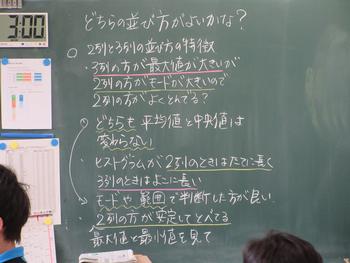 3:00
どちらの並び方がよいかな?
○2列と3列の並び方の特徴
・3列の方が最大値が大きいが
2列の方がモードが大きいので
2列の方がよくとんでる?
・どちらも平均値と中央値は
変わらない
・ヒストグラムが2列のときはたてに長く
3列のときはよこに長い
・モードや範囲で判断した方が良い
・2列の方が安定してとべてる
最大値と最小値を見て